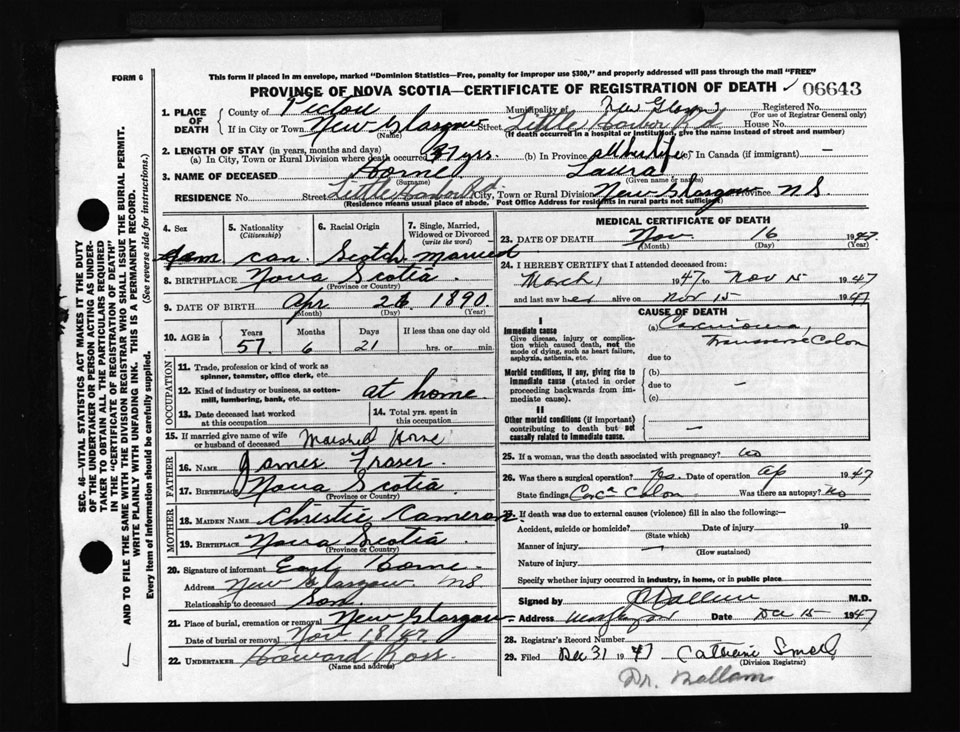 FORM 6
This form if placed in an envelope, marked "Dominion Statistics—Free, penalty for improper use $300," and properly addressed will pass through the mail "FREE"
PROVINCE OF NOVA SCOTIA—CERTIFICATE OF REGISTRATION OF DEATH 06643
1. PLACE OF DEATH County of Pictou Municipality of New Glasgow Registered No.
(For use of Registrar General only)
If in City or Town New Glasgow Street Little Harbor Rd House No.
(Name) (If death occurred in a hospital or institution, give the name instead of street and number)
2. LENGTH OF STAY (in years, months and days)
(a) In City, Town or Rural Division where death occurred 37 yrs. (b) In Province all her life (c) In Canada (if immigrant) —
3. NAME OF DECEASED Horne Laura
(Surname) (Given name or names)
RESIDENCE No. Street Little Harbor Rd. City, Town or Rural Division New Glasgow Province N.S.
(Residence means usual place of abode. Post Office Address for residents in rural parts not sufficient)
4. Sex 5. Nationality (Citizenship) 6. Racial Origin 7. Single, Married, Widowed or Divorced (write the word)
Fem Can. Scotch Married
8. BIRTHPLACE Nova Scotia
(Province or Country)
9. DATE OF BIRTH Apr 26 1890
(Month) (Day) (Year)
10. AGE in Years Months Days If less than one day old
57 6 21 hrs. or min.
OCCUPATION
11. Trade, profession or kind of work as spinner, teamster, office clerk, etc.
12. Kind of industry or business, as cotton-mill, lumbering, bank, etc. at home
13. Date deceased last worked at this occupation
14. Total yrs. spent in this occupation
15. If married give name of wife or husband of deceased Marshel Horne
FATHER
16. NAME James Fraser
17. BIRTHPLACE Nova Scotia
(Province or Country)
MOTHER
18. MAIDEN NAME Christie Cameron
19. BIRTHPLACE Nova Scotia
(Province or Country)
20. Signature of informant Horne
Address New Glasgow NS
Relationship to deceased Son
21. Place of burial, cremation or removal New Glasgow
Date of burial or removal Nov 18/47
22. UNDERTAKER Howard Ross
(Name and address)
MEDICAL CERTIFICATE OF DEATH
23. DATE OF DEATH Nov. 16 1947
(Month) (Day) (Year)
24. I HEREBY CERTIFY that I attended deceased from:
March 1947 to Nov 15 1947
and last saw her alive on Nov 15 1947
CAUSE OF DEATH
I
Immediate cause
Give disease, injury or complication which caused death, not the mode of dying, such as heart failure, asphyxia, asthenia, etc.
(a) Carcinoma, Transverse Colon
due to
Morbid conditions, if any, giving rise to immediate cause (stated in order proceeding backwards from immediate cause).
(b)
due to —
(c)
II
Other morbid conditions (if important) contributing to death but not causally related to immediate cause. —
25. If a woman, was the death associated with pregnancy? no
26. Was there a surgical operation? Yes. Date of operation Ap 1947
State findings Carc Colon Was there autopsy? No
27. If death was due to external causes (violence) fill in also the following:—
Accident, suicide or homicide? Date of injury 19
(State which)
Manner of injury —
(How sustained)
Nature of injury
Specify whether injury occurred in industry, in home, or in public place
Signed by M.D.
Address Date Dec 15 1947
28. Registrar's Record Number
29. Filed Dec 31 1947 Catherine
(Division Registrar)
Dr. Ballam
SEC. 46—VITAL STATISTICS ACT MAKES IT THE DUTY
OF THE UNDERTAKER OR PERSON ACTING AS UNDER-
TAKER TO OBTAIN ALL THE PARTICULARS REQUIRED
IN THE "CERTIFICATE OF REGISTRATION OF DEATH"
AND TO FILE THE SAME WITH THE DIVISION REGISTRAR WHO SHALL ISSUE THE BURIAL PERMIT.
WRITE PLAINLY WITH UNFADING INK. THIS IS A PERMANENT RECORD.
Every item of information should be carefully supplied. (See reverse side for instructions.)